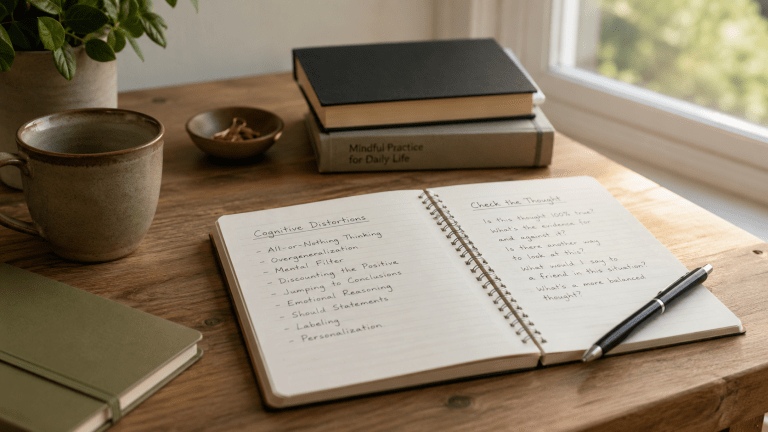 Mindful Practice
for Daily Life
Cognitive Distortions
- All-or-Nothing Thinking
- Overgeneralization
- Mental Filter
- Discounting the Positive
- Jumping to Conclusions
- Emotional Reasoning
- Should Statements
- Labeling
- Personalization
Check the Thought
Is this thought 100% true?
What's the evidence for
and against it?
Is there another way
to look at this?
What would I say to
a friend in this situation?
What's a more balanced
thought?